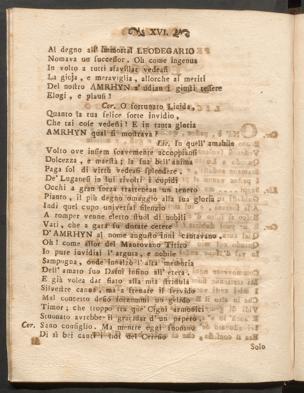 XVI.
Al degno all' immortal LEODEGARIO
Nomava un successor. Oh come ingenua
In volto a tutti sfavillar vedeasi
La gioja, e meraviglia, allorchè ai meriti
Del nostro AMRHYN s' udian i giusti tessere
Elogi, e plausi!
Cor. O fortunato Licida,
Quanto la tua felice sorte invidio,
Che tai cose vedesti! E in tanta gloria
AMRHYN qual si mostrava?
Lic. In quell' amabile
Volto ove insem soavemente accoppiansi
Dolcezza, e maestà; la sua bell' anima
Paga sol di virtù vedeasi splendere.
De' Luganesi in lui rivolti i cupidi
Occhi a gran forza trattenean un tenero
Pianto, il più degno omeggio alla sua gloria
Indi quel cupo universal silenzio
A romper venne eletto stuol di nobili
Vati, che a gara su dorate cetere
D' AMRHYN al nome augusto inni cantavano.
Oh! come allor del Mantovano Titiro
Io pure invidiai l' arguta, e nobile
Sampogna, onde innalzò l' alta memoria
Dell' amato suo Dafni infino all' etera.
E già volea dar fiato alla mia stridula
Silvestre canna, ma a frenare il fervido
Mal concetto desio sorvenmi un gelido
Timor; che troppo tra que' Cigni armonici
Stuonato avrebbe il gracidar d' un papero.
Cor. Sano consiglio. Ma mentre eggi suonano
Di sì bei canti i lidi del Ceresio
Solo